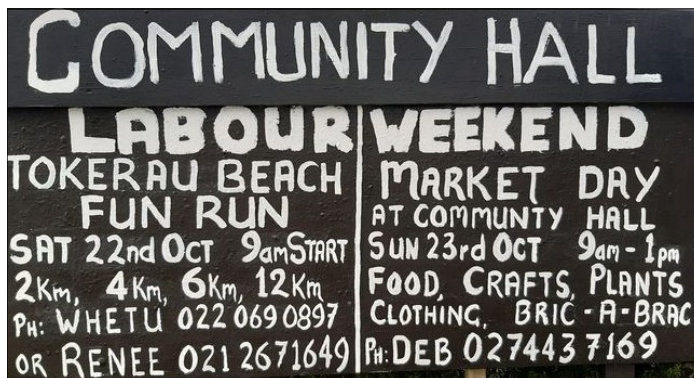 COMMUNITY HALL
LABOUR WEEKEND
TOKERAU BEACH
FUN RUN
SAT 22nd OCT 9am START
2Km, 4Km, 6Km, 12Km
PH: WHETU 022 069 0897
OR RENEE 021 2671649
MARKET DAY
AT COMMUNTY HALL
SUN 23rd OCT 9am - 1pm
FOOD, CRAFTS, PLANTS
CLOTHING, BRIC - A - BRAC
PH: DEB 027 443 7169